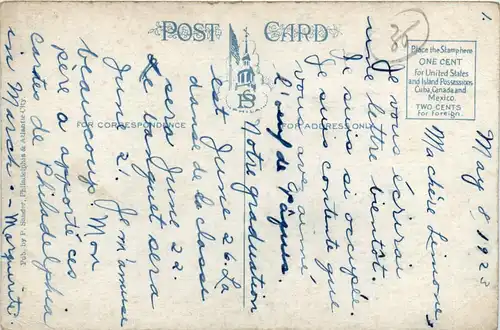 POST CARD
35
Place the Stamp here
ONE CENT
for United States
and Island Possessions
Cuba, Canada and
Mexico.
TWO CENTS
for foreign.
FOR CORRESPONDENCE
FOR ADDRESS ONLY
PS
Pub. by P. Sander, Philadelphia & Atlantic City
May 8 1923
Ma chère Simone,
Je vous écrirai
une lettre bientôt.
Je suis si occupée.
Je suis contente que
vous avez aimé
l'œuf de Pâques.
Notre graduation
est June 26. La
danse de la classe
sera June 22.
Le banquet sera
June 2. Je m'amuse
beaucoup. Mon
père a apporté ces
cartes de Philadelphia
in March. - Marguerite